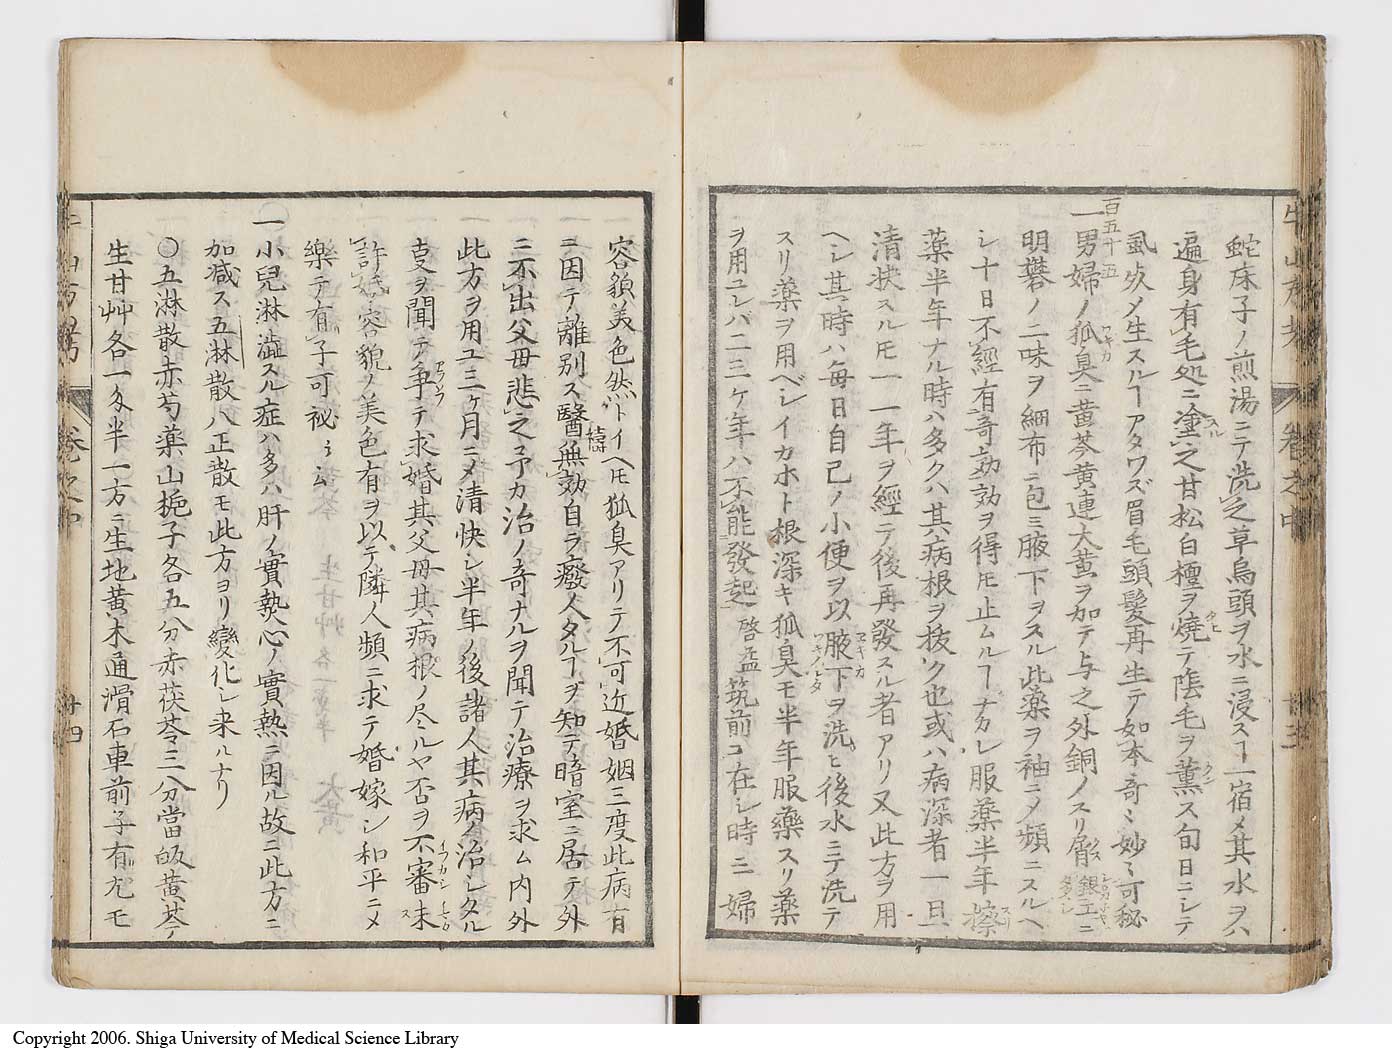 蛇床子ノ煎湯ニテ洗之草烏頭ヲ水ニ浸スヿ一宿〆其水ヲハ
遍身有毛処ニ塗之甘松白檀ヲ燒テ陰毛ヲ薫ス旬日ニシテ
虱死〆生スルヿアタワズ眉毛頭髪再生テ如本奇ミ妙ミ可秘
百五十五
一男婦ノ狐臭ニ黄芩黄連大黄ヲ加テ与之外銅ノスリ屑銀工ニ
明礬ノ二味ヲ細布ニ包ミ腋下ヲスル此薬ヲ袖ニ〆頻ニスルヘ
シ十日不經有奇効効ヲ得ㇳモ止ムルヿナカレ服薬半年擦
薬半年ナル時ハ多クハ其病根ヲ抜ク也或ハ病深者一旦
清快スルㇳモ一一年ヲ經テ後再發スル者アリ又此方ヲ用
ヘシ其時ハ毎日自己ノ小便ヲ以腋下ヲ洗ヒ後水ニテ洗テ
スリ藥ヲ用ベレイカホト根深キ狐臭モ半年服藥スリ藥
ヲ用ユレバ二三ケ年ハ不能發起啓益筑前ニ在シ時ニ婦
牛山方考
卷之中
容顔美色然トイヘㇳモ狐臭アリテ不可近婚姻三度此病有
ニ因テ離別ス醫禱無効自ラ癈人タルヿヲ知テ暗室ニ居テ外
ニ不出父母悲之予カ治ノ奇ナルヲ聞テ治療ヲ求ム内外
此方ヲ用ユ三ケ月ニ〆清快シ半年ノ後諸人其病ノ治シタル
叓ヲ聞テ争テ求婚其父母其病根ノ尽ルヤ否ヲ不審未
許婚容貌ノ美色有ヲ以テ隣人頻ニ求テ婚嫁シ和平ニ〆
樂テ有子可秘
一小兒淋澁スル症ハ多ハ肝ノ實熱心ノ實熱ニ因ル故ニ此方ニ
加减ス五淋散八正散モ此方ヨリ變化シ来ルナリ
〇五淋散赤芍薬山梔子各五分赤茯苓三分當皈黄芩
生甘艸各一匁半一方ニ生地黄木通滑石車前子有尤モ
卷之中
廿四
Copyright 2006. Shiga University of Medical Science Library